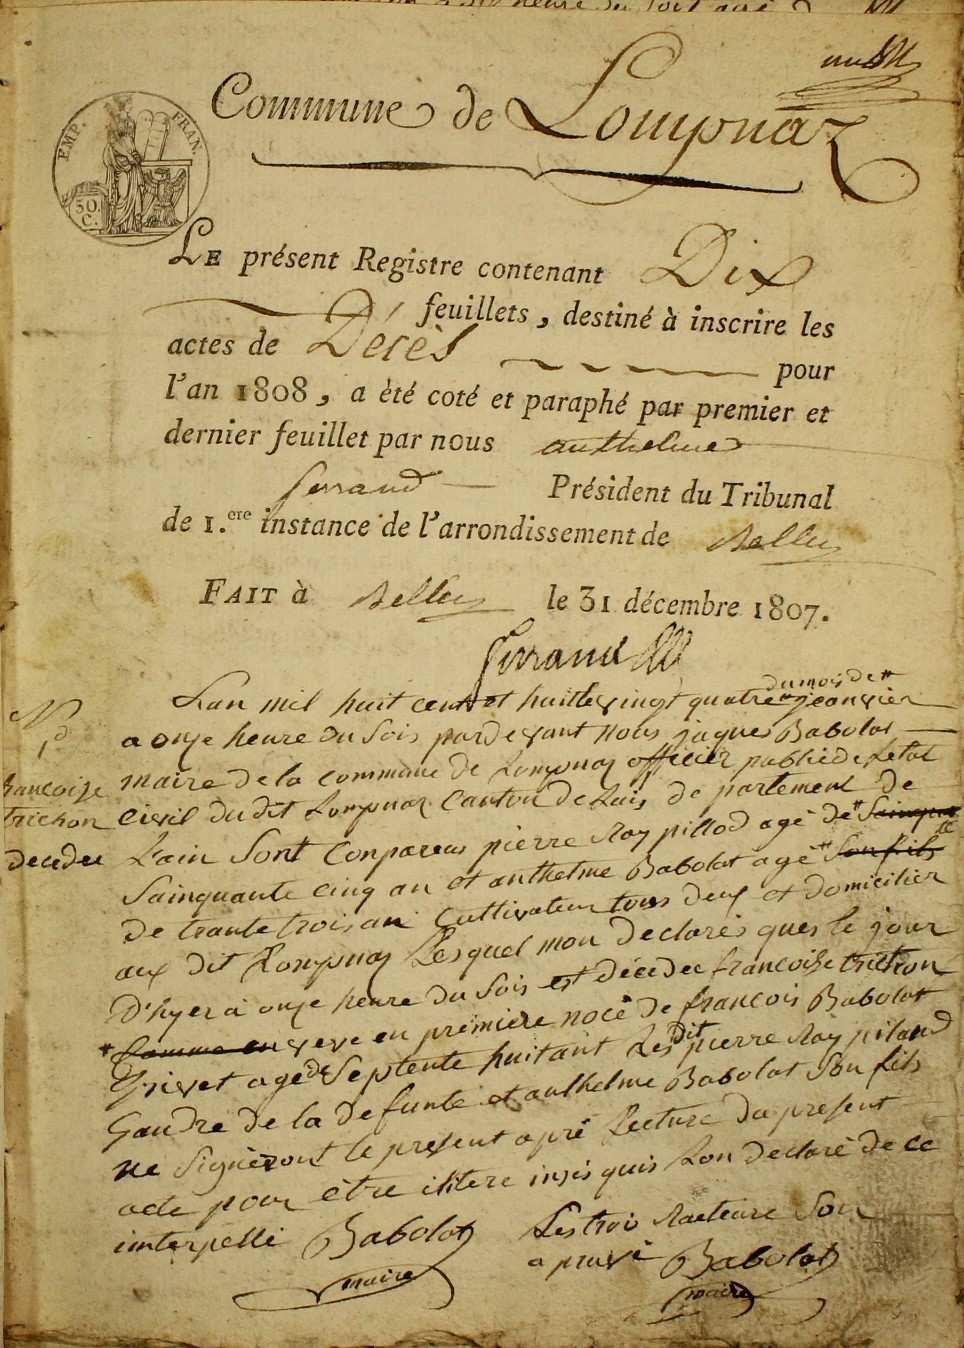 Commune de Lompnaz
EMP. FRAN.
50.
C.
LE présent Registre contenant Dix
feuillets, destiné à inscrire les
actes de Décès pour
l'an 1808, a èté coté et paraphé par premier et
dernier feuillet par nous anthelme
ferrand Président du Tribunal
de 1.ere instance de l'arrondissement de Belley
FAIT à Belley le 31 décembre 1807.
ferrand
N
1
francoise
trichon
decedee
du mois de
Lan mil huit cent et huit le vingt quatre jeanvier
a onze heure du Sois pardevant nous jaques Babolat
maire de la commune de Lompnaz officier public de Letat
civil du dit Lompnaz Canton de Luis de partement de
L'ain Sont Conpareus pierre Roy pillod agé de Sainqua
Sainquante cinq an et anthelme Babolat agé Son fils
de trante trois an cultivateur tous deux et domicilier
aux dit Lompnaz Lesquel mon declarés ques le jour
D'hyer à onze heure du Sois est décedee francoise trichon
famme en veve en premiere nocé de francois Babolat
agé de Septente huitant Les dit pierre Roy piland
Gandre de la defunte et anthelme Babolat Son fils
ne Signeront le present apré Lecture du present
acte pour être insis quis Lon declaré de ce
interpellé Babolat Les trois Son
maire apruvé Babolat
maire